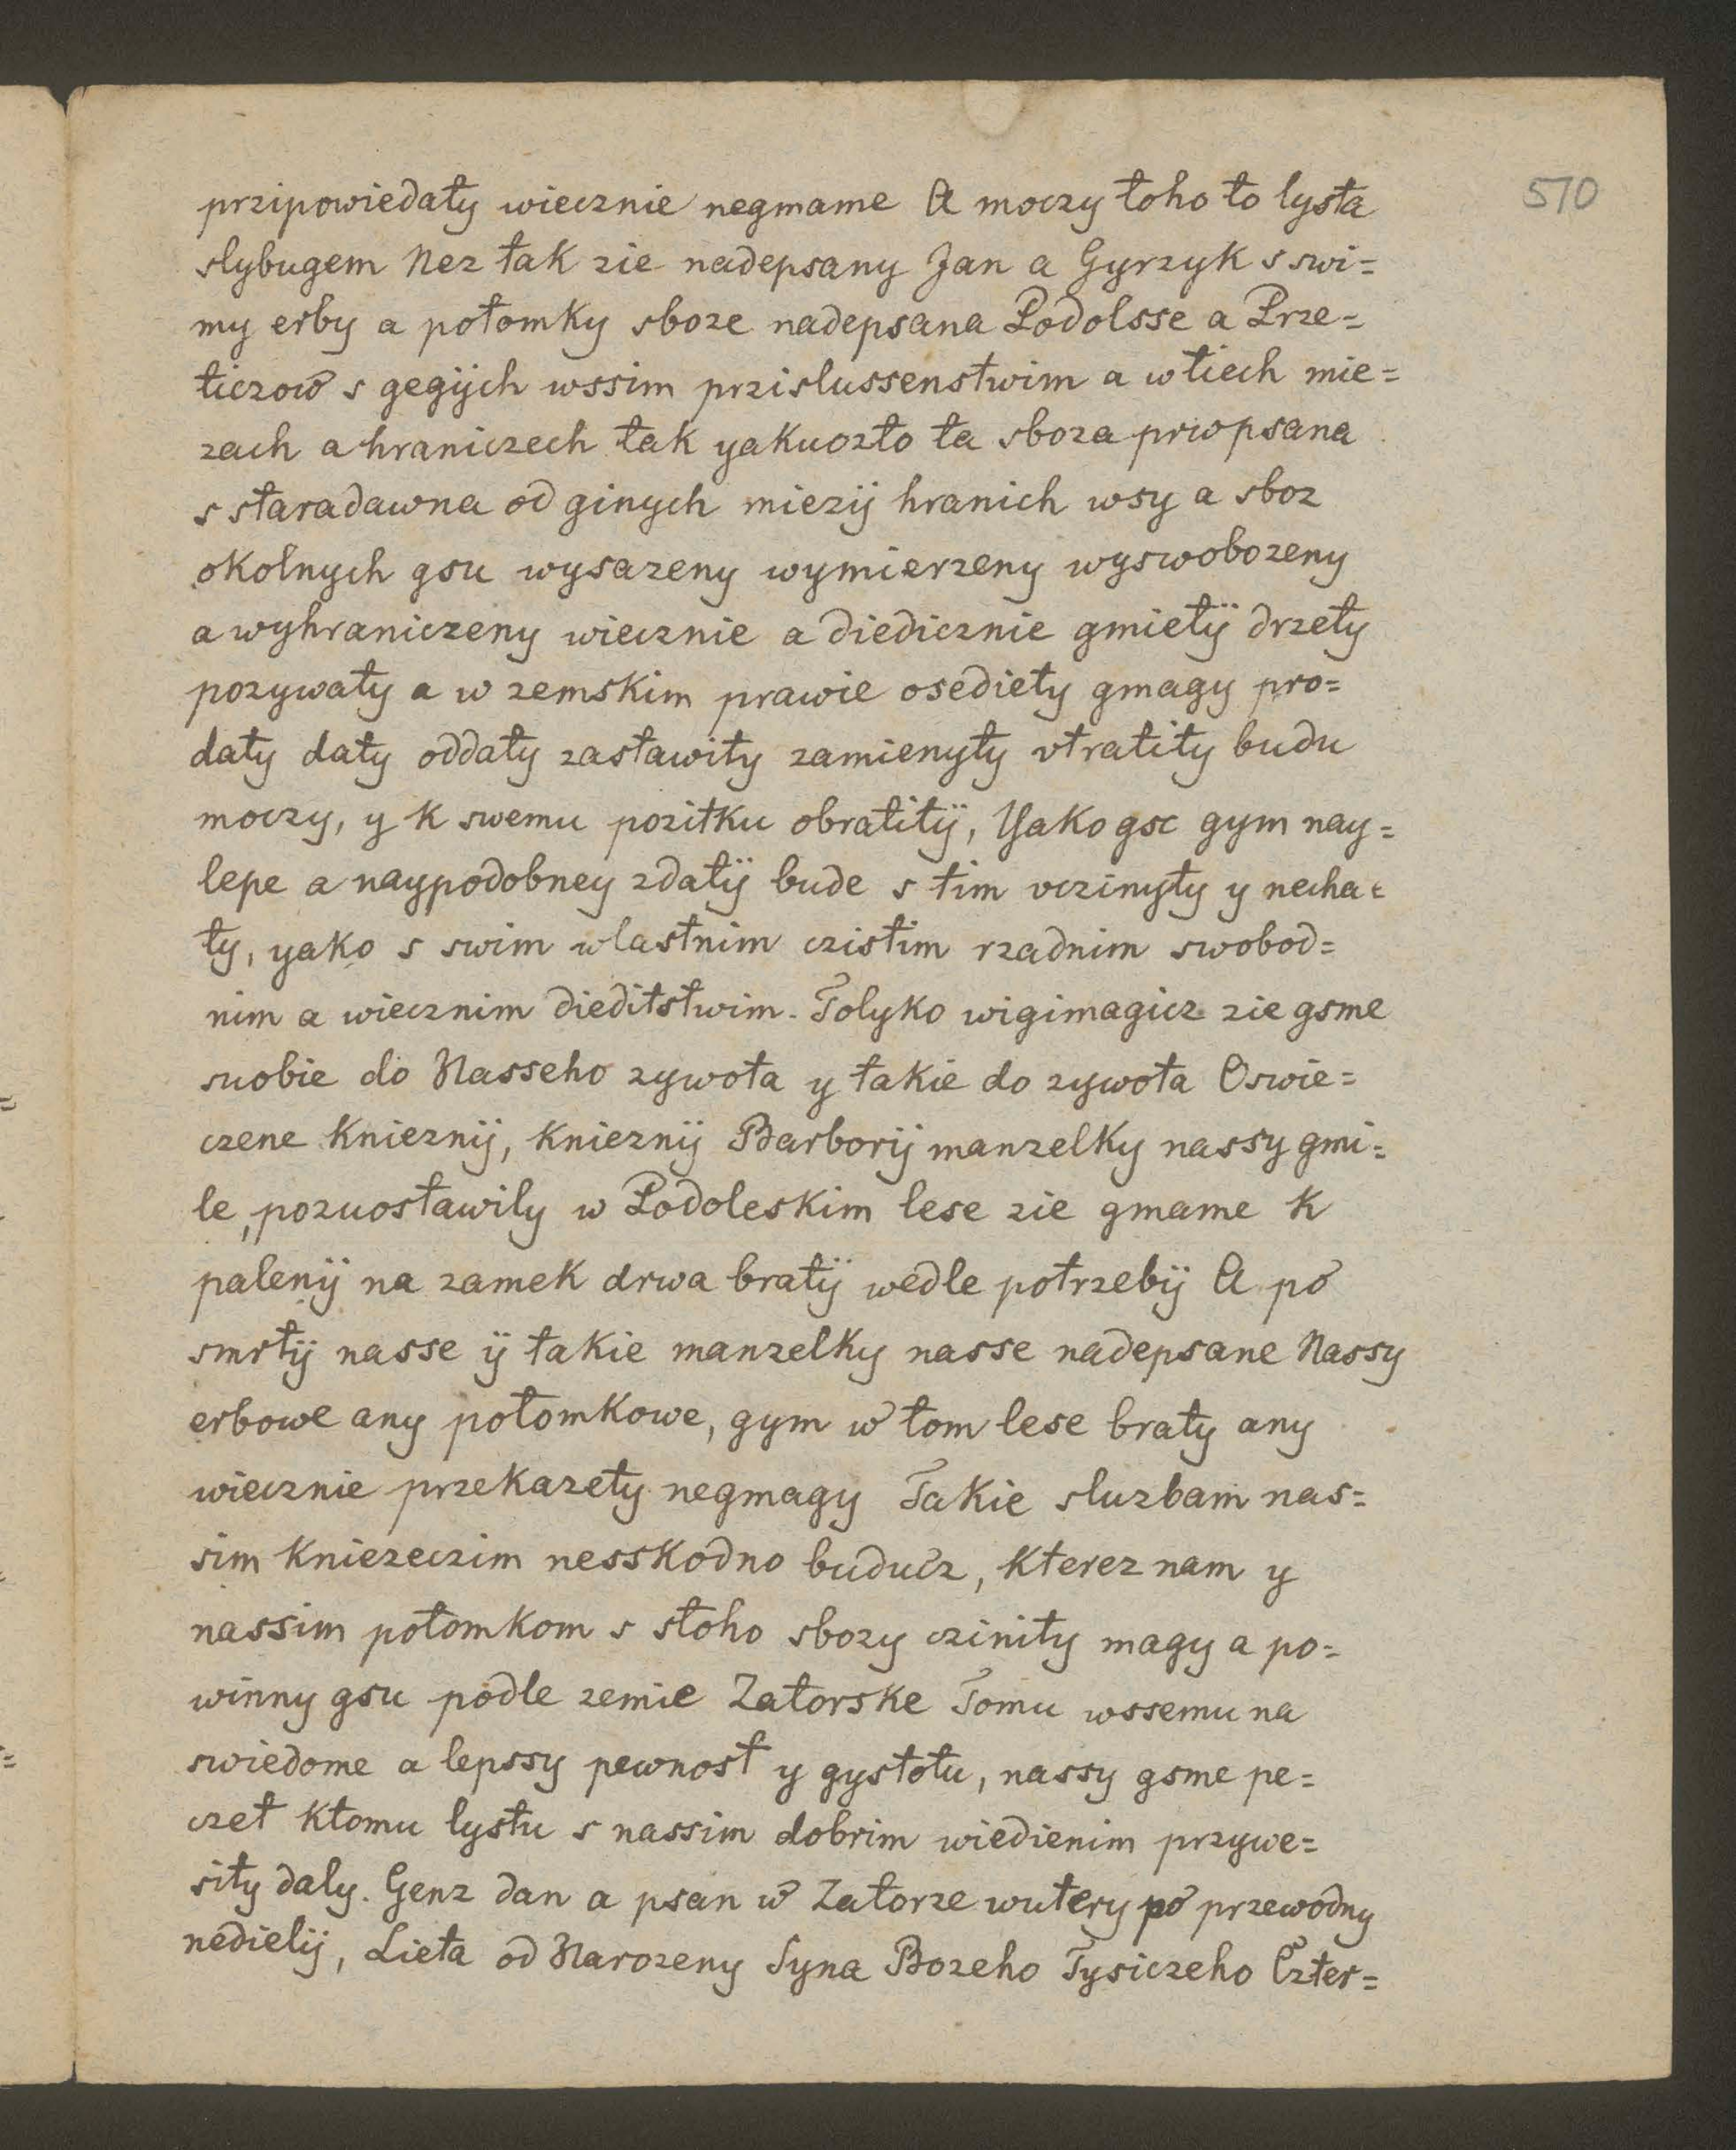 570
przipowiedaty wiecznie negmame A moczy toho to lysta
slybugem Nez tak zie nadepsany Jan a Gyrzyk s swi=
my erby a potomky sboze nadepsana Podolsse a Prze=
ticzow s gegijch wssim przislussenstwim a w tiech mie=
zach a hraniczech tak yakuozto ta sboza prwopsana
s staradawna od ginych miezij hranich wsy a sboz
okolnych gsu wysazeny wymierzeny wyswobozeny
a wyhraniczeny wiecznie a diedicznie gmietÿ drzety
pozywaty a w zemskim prawie osediety gmagy pro=
daty daty oddaty zastawity zamienyty vtratity budu
moczy, y k swemu pozitku obratitÿ, Yako gsc gym nay=
lepe a naypodobney zdatÿ bude s tim vczinyty y necha=
ty, yako s swim wlastnim czistim rzadnim swobod=
nim a wiecznim dieditstwim. Tolyko wigimagicz zie gsme
suobie do Nasseho zywota y takie do zywota Oswie=
czene Knieznij, Knieznij Barborij manzelky nassy gmi=
le, pozuostawily w Podoleskim lese zie gmame k
palenij na zamek drwa bratÿ wedle potrzebij A po
smrtij nasse ÿ takie manzelky nasse nadepsane Nassy
erbowe any potomkowe, gym w tom lese braty any
wiecznie przekazety negmagy Takie sluzbam nas=
sim Kniezeczim nesskodno buducz, Kterez nam y
nassim potomkom s stoho sbozy czinity magy a po=
winny gsu podle zemie Zatorske Tomu wssemu na
swiedome a lepssy pewnost y gystotu, nassy gsme pe=
czet Ktomu lystu s nassim dobrim wiedienim przywe=
sity daly. Genz dan a psan w Zatorze wutery po przewodny
nedielij, Lieta od Narozeny Syna Bozeho Tysiczeho Czter=